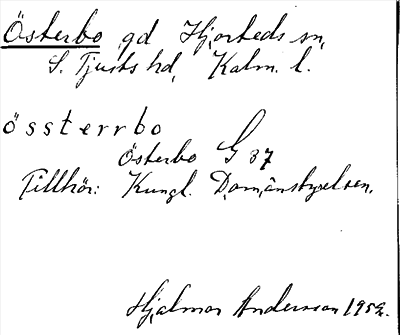 Österbo gd Hjorteds sn,
S. Tjusts hd, Kalm. l.
össterrbo
Österbo G 37
Tillhör: Kungl. Domänstyrelsen.
Hjalmar Andersson 1952.